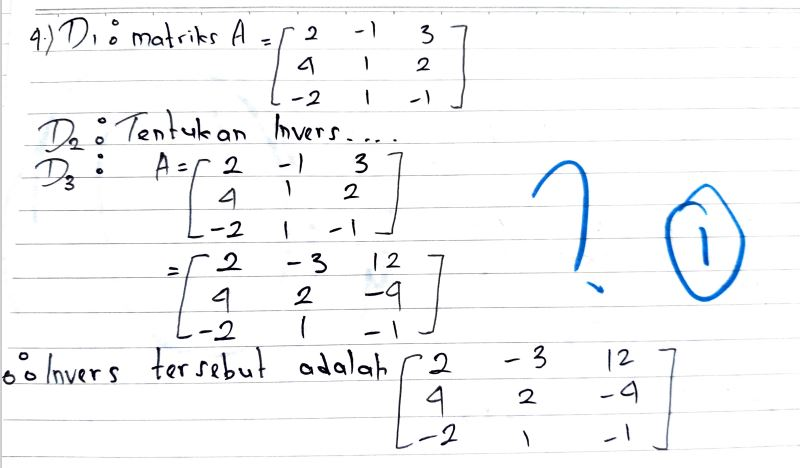 4.) D1 : matriks A = [ 2 -1 3
4 1 2
-2 1 -1 ]
D2 : Tentukan Invers....
D3 : A = [ 2 -1 3
4 1 2
-2 1 -1 ]
= [ 2 -3 12
4 2 -4
-2 1 -1 ]
? 1
∴ Invers tersebut adalah [ 2 -3 12
4 2 -4
-2 1 -1 ]